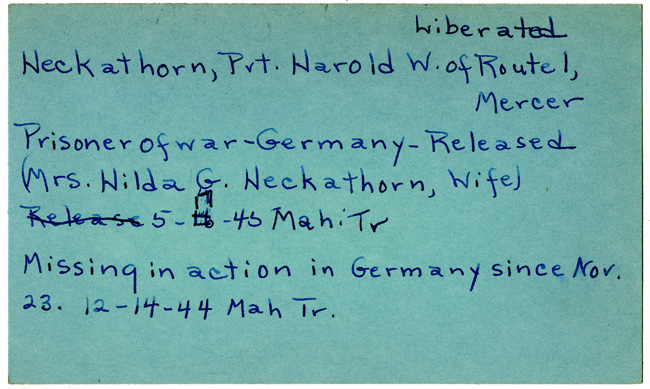 Liberated
Heckathorn, Pvt. Harold W. of Route 1,
Mercer
Prisoner of war-Germany-Released
(Mrs. Hilda G. Heckathorn, Wife)
Release 5- -45 Mah. Tr
Missing in action in Germany since Nov.
23. 12-14-44 Mah Tr.